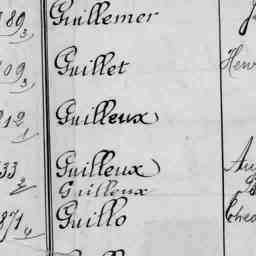 189 3 Guillemer
09 3 Guillet Hen
212 1 Guilleux
33 2 Guilleux Au
Guilleux
871 4 Guillo Theo